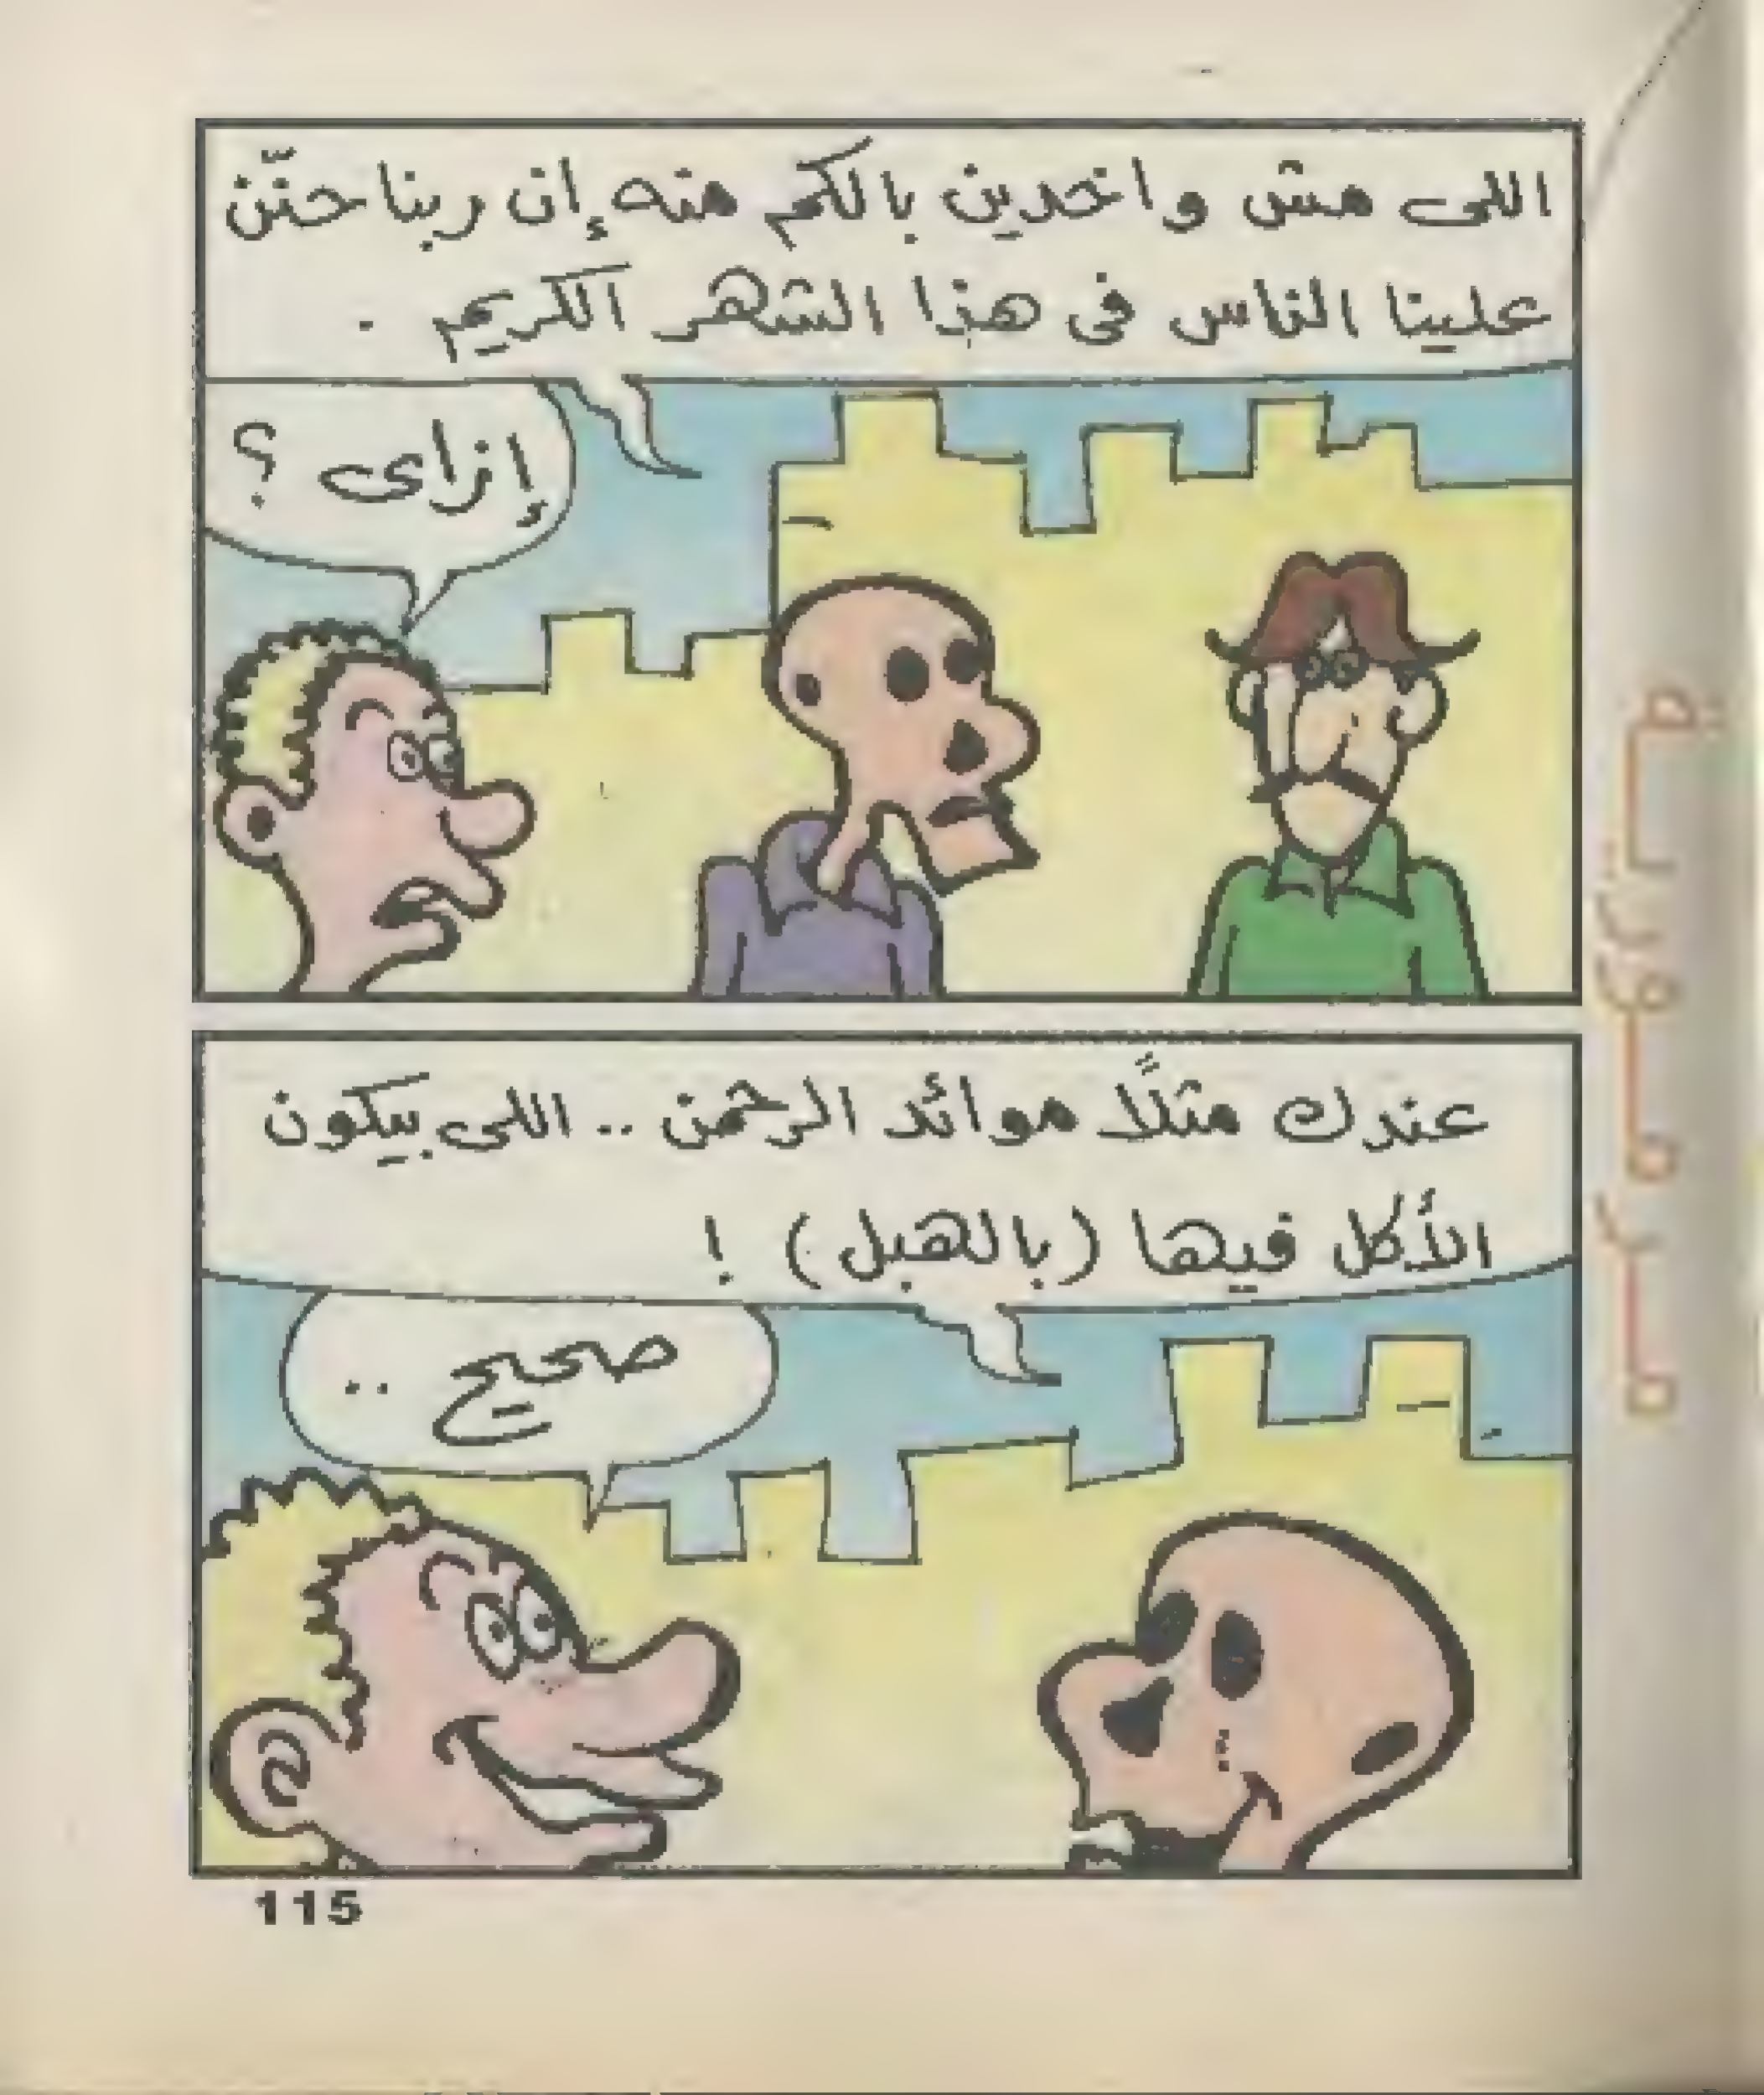 اللى مش واخدين بالكم منه إن ربنا حنّن
علينا الناس فى هذا الشهر الكريم .
إزاى ؟
عندك مثلًا موائد الرحمن .. اللى بيكون
الأكل فيها (بالهبل) !
صحيح ..
115